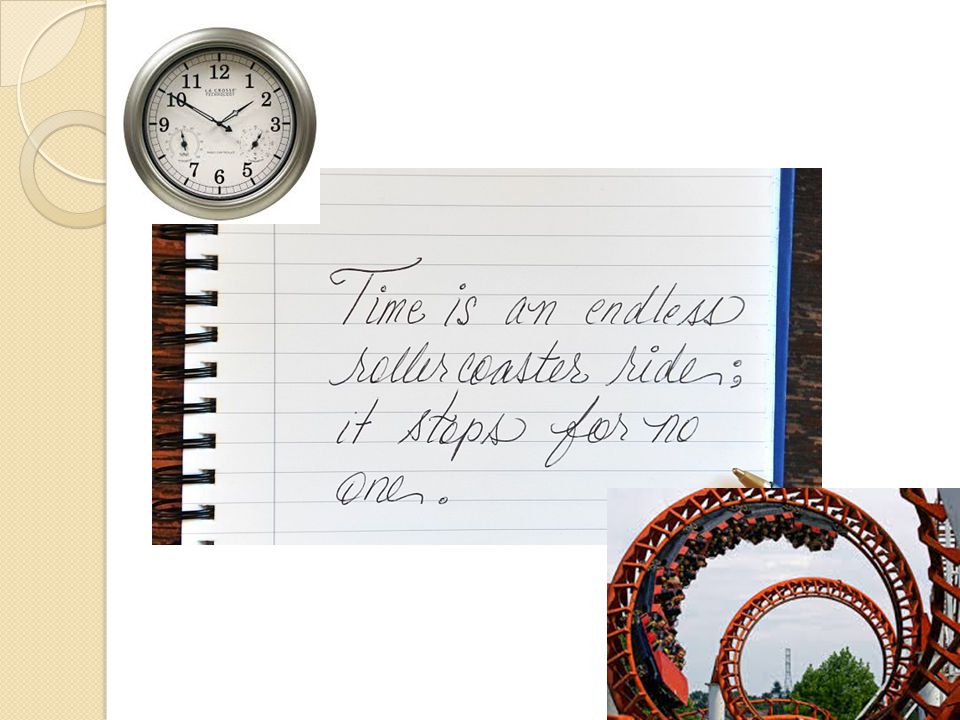 12
11
1
LA CROSSE
TECHNOLOGY
10
2
9
3
7
5
6
Time is an endless
rollercoaster ride;
it stops for no
one.